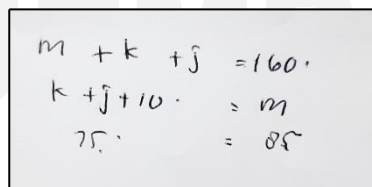 m + k + j = 160.
k + j + 10. = m
75. = 85